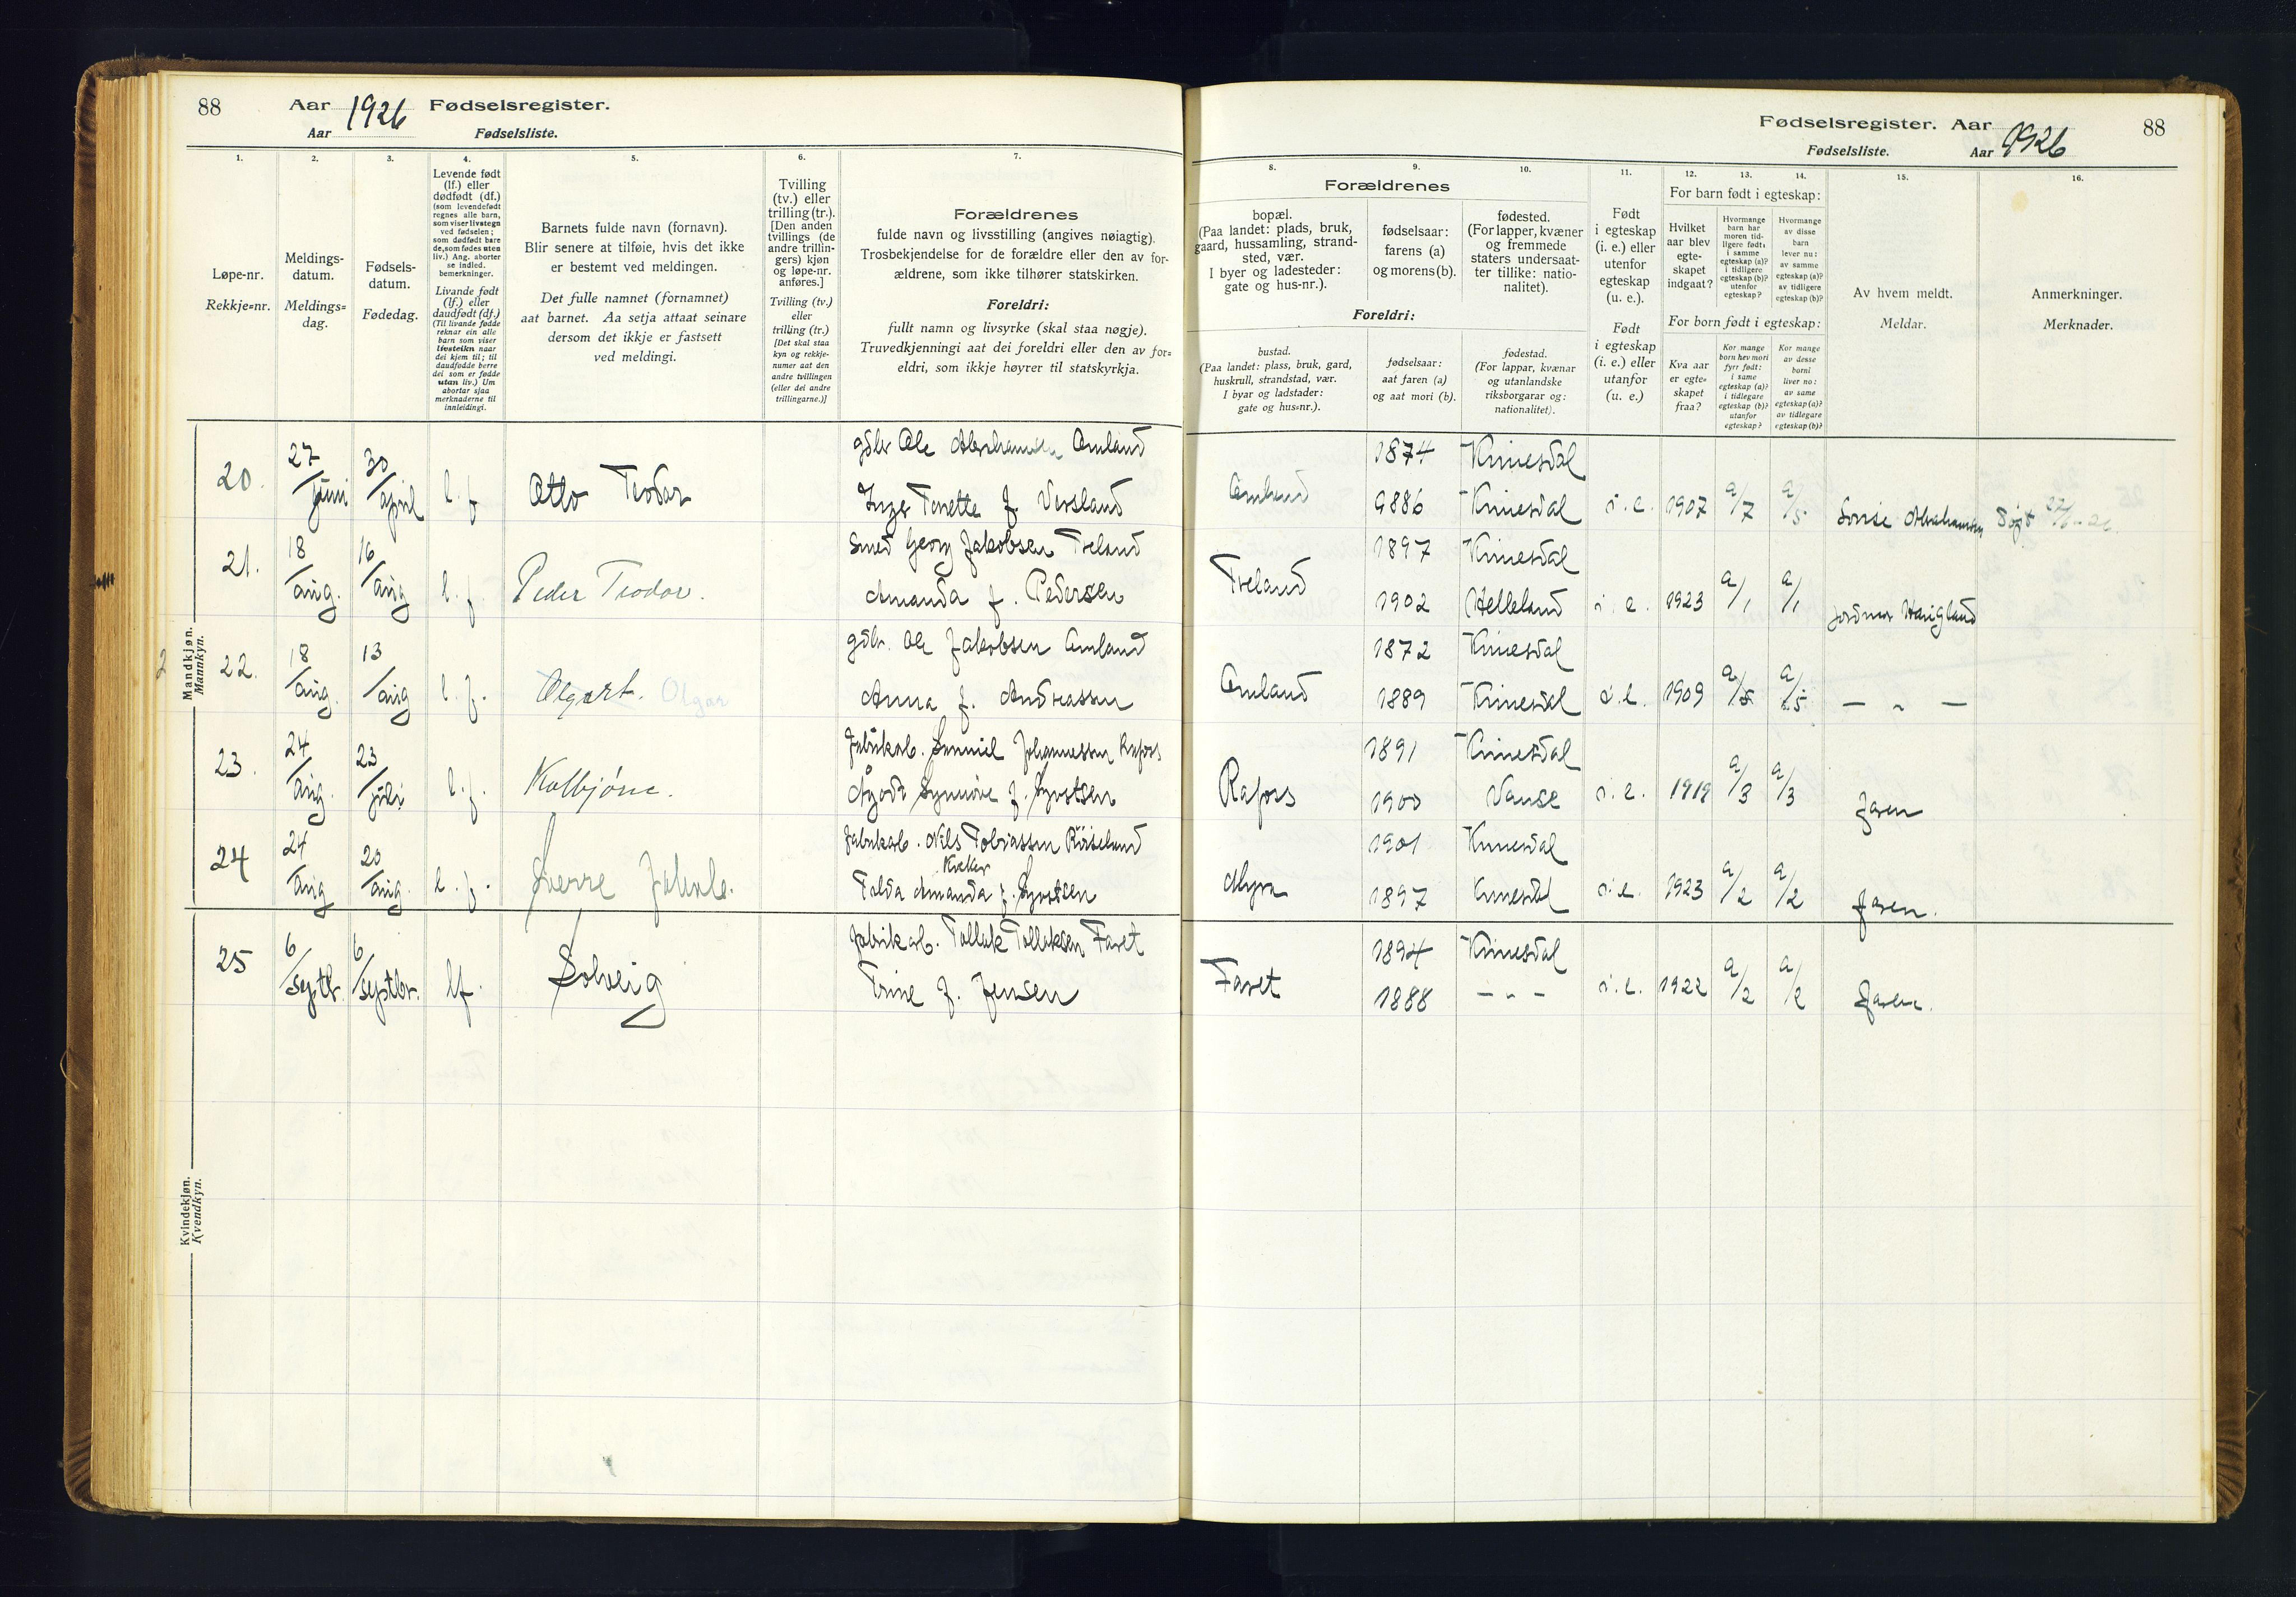 88 Aar 1926 Fødselsregister.
Aar Fødselsliste.
1. 2. 3. 4. 5. 6. 7.
Løpe-nr.
Rekkje=nr.
Meldings-
datum.
Meldings=
dag.
Fødsels-
datum.
Fødedag.
Levende født
(lf.) eller
dødfødt (df.)
(som levendefødt
regnes alle barn,
som viser livstegn
ved fødselen;
som dødfødt bare
de, som fødes uten
liv.) Ang. aborter
se indled.
bemerkninger.
Livande født
(lf.) eller
daudfødt (df.)
(Til livande fødde
reknar ein alle
barn som viser
livsteikn naar
dei kjem til; til
daudfødde berre
dei som er fødde
utan liv.) Um
abortar sjaa
merknaderne til
innleidingi.
Barnets fulde navn (fornavn).
Blir senere at tilføie, hvis det ikke
er bestemt ved meldingen.
Det fulle namnet (fornamnet)
aat barnet. Aa setja attaat seinare
dersom det ikkje er fastsett
ved meldingi.
Tvilling
(tv.) eller
trilling (tr.).
[Den anden
tvillings (de
andre trillin-
gers) kjøn
og løpe-nr.
anføres.]
Tvilling (tv.)
eller
trilling (tr.)
[Det skal staa
kyn og rekkje-
numer aat den
andre tvillingen
(eller dei andre
trillingarne.)]
Forældrenes
fulde navn og livsstilling (angives nøiagtig).
Trosbekjendelse for de forældre eller den av for-
ældrene, som ikke tilhører statskirken.
Foreldri:
fullt namn og livsyrke (skal staa nøgje).
Truvedkjenningi aat dei foreldri eller den av for=
eldri, som ikkje høyrer til statskyrkja.
Mandkjøn.
Mannkyn.
20. 27/juni 30/april l. f Otto Teodor
gdbr Ole Abrahamsen Amland
Inger Tonette f. Versland
21. 18/aug. 16/aug l. f. Peder Teodor.
Smed Georg Jakobsen Treland
Amanda f. Pedersen
22. 18/aug. 13/aug l. f. Olgart. Olgar
gdbr. Ole Jakobsen Amland
Anna f. Andreassen
23. 24/aug. 23/juli l. f. Kolbjörn.
Fabrikarb. Samuel Johannessen Rafoss
Synnöve f. Syvertsen
24 24/aug 20/aug. l. f. Sverre Jakob.
Fabrikarb. Nils Tobiassen Röiseland
Tolda Amanda f. Syvertsen
25 6/septb. 6/septbr. lf. Solveig
Fabrikarb. Tollak Tollaksen Faret
Trine f. Jensen
Kvindekjøn.
Kvendkyn.
Fødselsregister. Aar 1926 88
Fødselsliste. Aar
8. 9. 10. 11. 12. 13. 14. 15. 16.
Forældrenes
bopæl.
(Paa landet: plads, bruk,
gaard, hussamling, strand-
sted, vær.
I byer og ladesteder:
gate og hus-nr.).
fødselsaar:
farens (a)
og morens (b).
fødested.
(For lapper, kvæner
og fremmede
staters undersaat-
ter tillike: natio-
nalitet).
Foreldri:
bustad.
(Paa landet: plass, bruk, gard,
huskrull, strandstad, vær.
I byar og ladstader:
gate og hus=nr.).
fødselsaar:
aat faren (a)
og aat mori (b).
fødestad.
(For lappar, kvænar
og utanlandske
riksborgarar og:
nationalitet).
Født
i egteskap
(i. e.) eller
utenfor
egteskap
(u. e.).
Født
i egteskap
(i. e.) eller
utanfor
(u. e.)
For barn født i egteskap:
Hvilket
aar blev
egte-
skapet
indgaat?
Hvormange
barn har
moren tid-
ligere født:
i samme
egteskap (a)?
i tidligere
egteskap (b)?
utenfor
egteskap?
Hvormange
av disse
barn
lever nu:
av samme
egteskap (a)?
av tidligere
egteskap (b)?
For born født i egteskap:
Kva aar
er egte=
skapet
fraa?
Kor mange
born hev mori
fyrr født:
i same
egteskap (a)?
i tidlegare
egteskap (b)?
utanfor
egteskap?
Kor mange
av desse
borni
liver no:
av same
egteskap (a)?
av tidlegare
egteskap (b)?
Av hvem meldt.
Meldar.
Anmerkninger.
Merknader.
Amland 1874 Kvinesdal
1886 Kvinesdal i. e. 1907 a/7 a/5 Abrahamsen Döpt 27/6-26.
Treland 1897 Kvinesdal
1902 Helleland i. e. 1923 a/1 a/1 jordmor Haugland
Amland 1872 Kvinesdal
1889 Kvinesdal i. e. 1909 a/5 a/5 — „ —
Rafoss 1891 Kvinesdal
1900 Vanse i. e. 1919 a/3 a/3 faren
Myra 1901 Kvinesdal
1897 Kvinesdal i. e. 1923 a/2 a/2 faren.
Faret 1894 Kvinesdal
1888 — „ — i. e. 1922 a/2 a/2 faren.